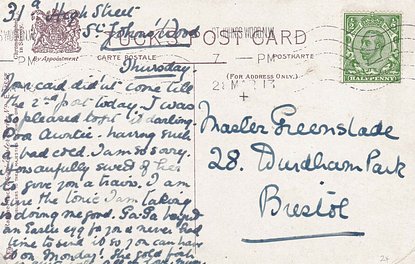 31a High Street
St. Johns Wood
TUCK'S POST CARD
By Appointment
CARTE POSTALE
POSTKARTE
(FOR ADDRESS ONLY.)
7 - PM
PM
28 MR 13
HALFPENNY
Thursday
card didn't come till
the 2nd post today. I was
so pleased to get it darling.
Poor Auntie. having such
a bad cold. I am so sorry.
How awfully sweet of her
to give you a train. I am
sure the tonic I am taking
is doing me good. Pa-Pa
an Easter egg for you & never had
time to send it so you can have
it on Monday! The gold fish
Master Greenslade
28. Durdham Park
Bristol